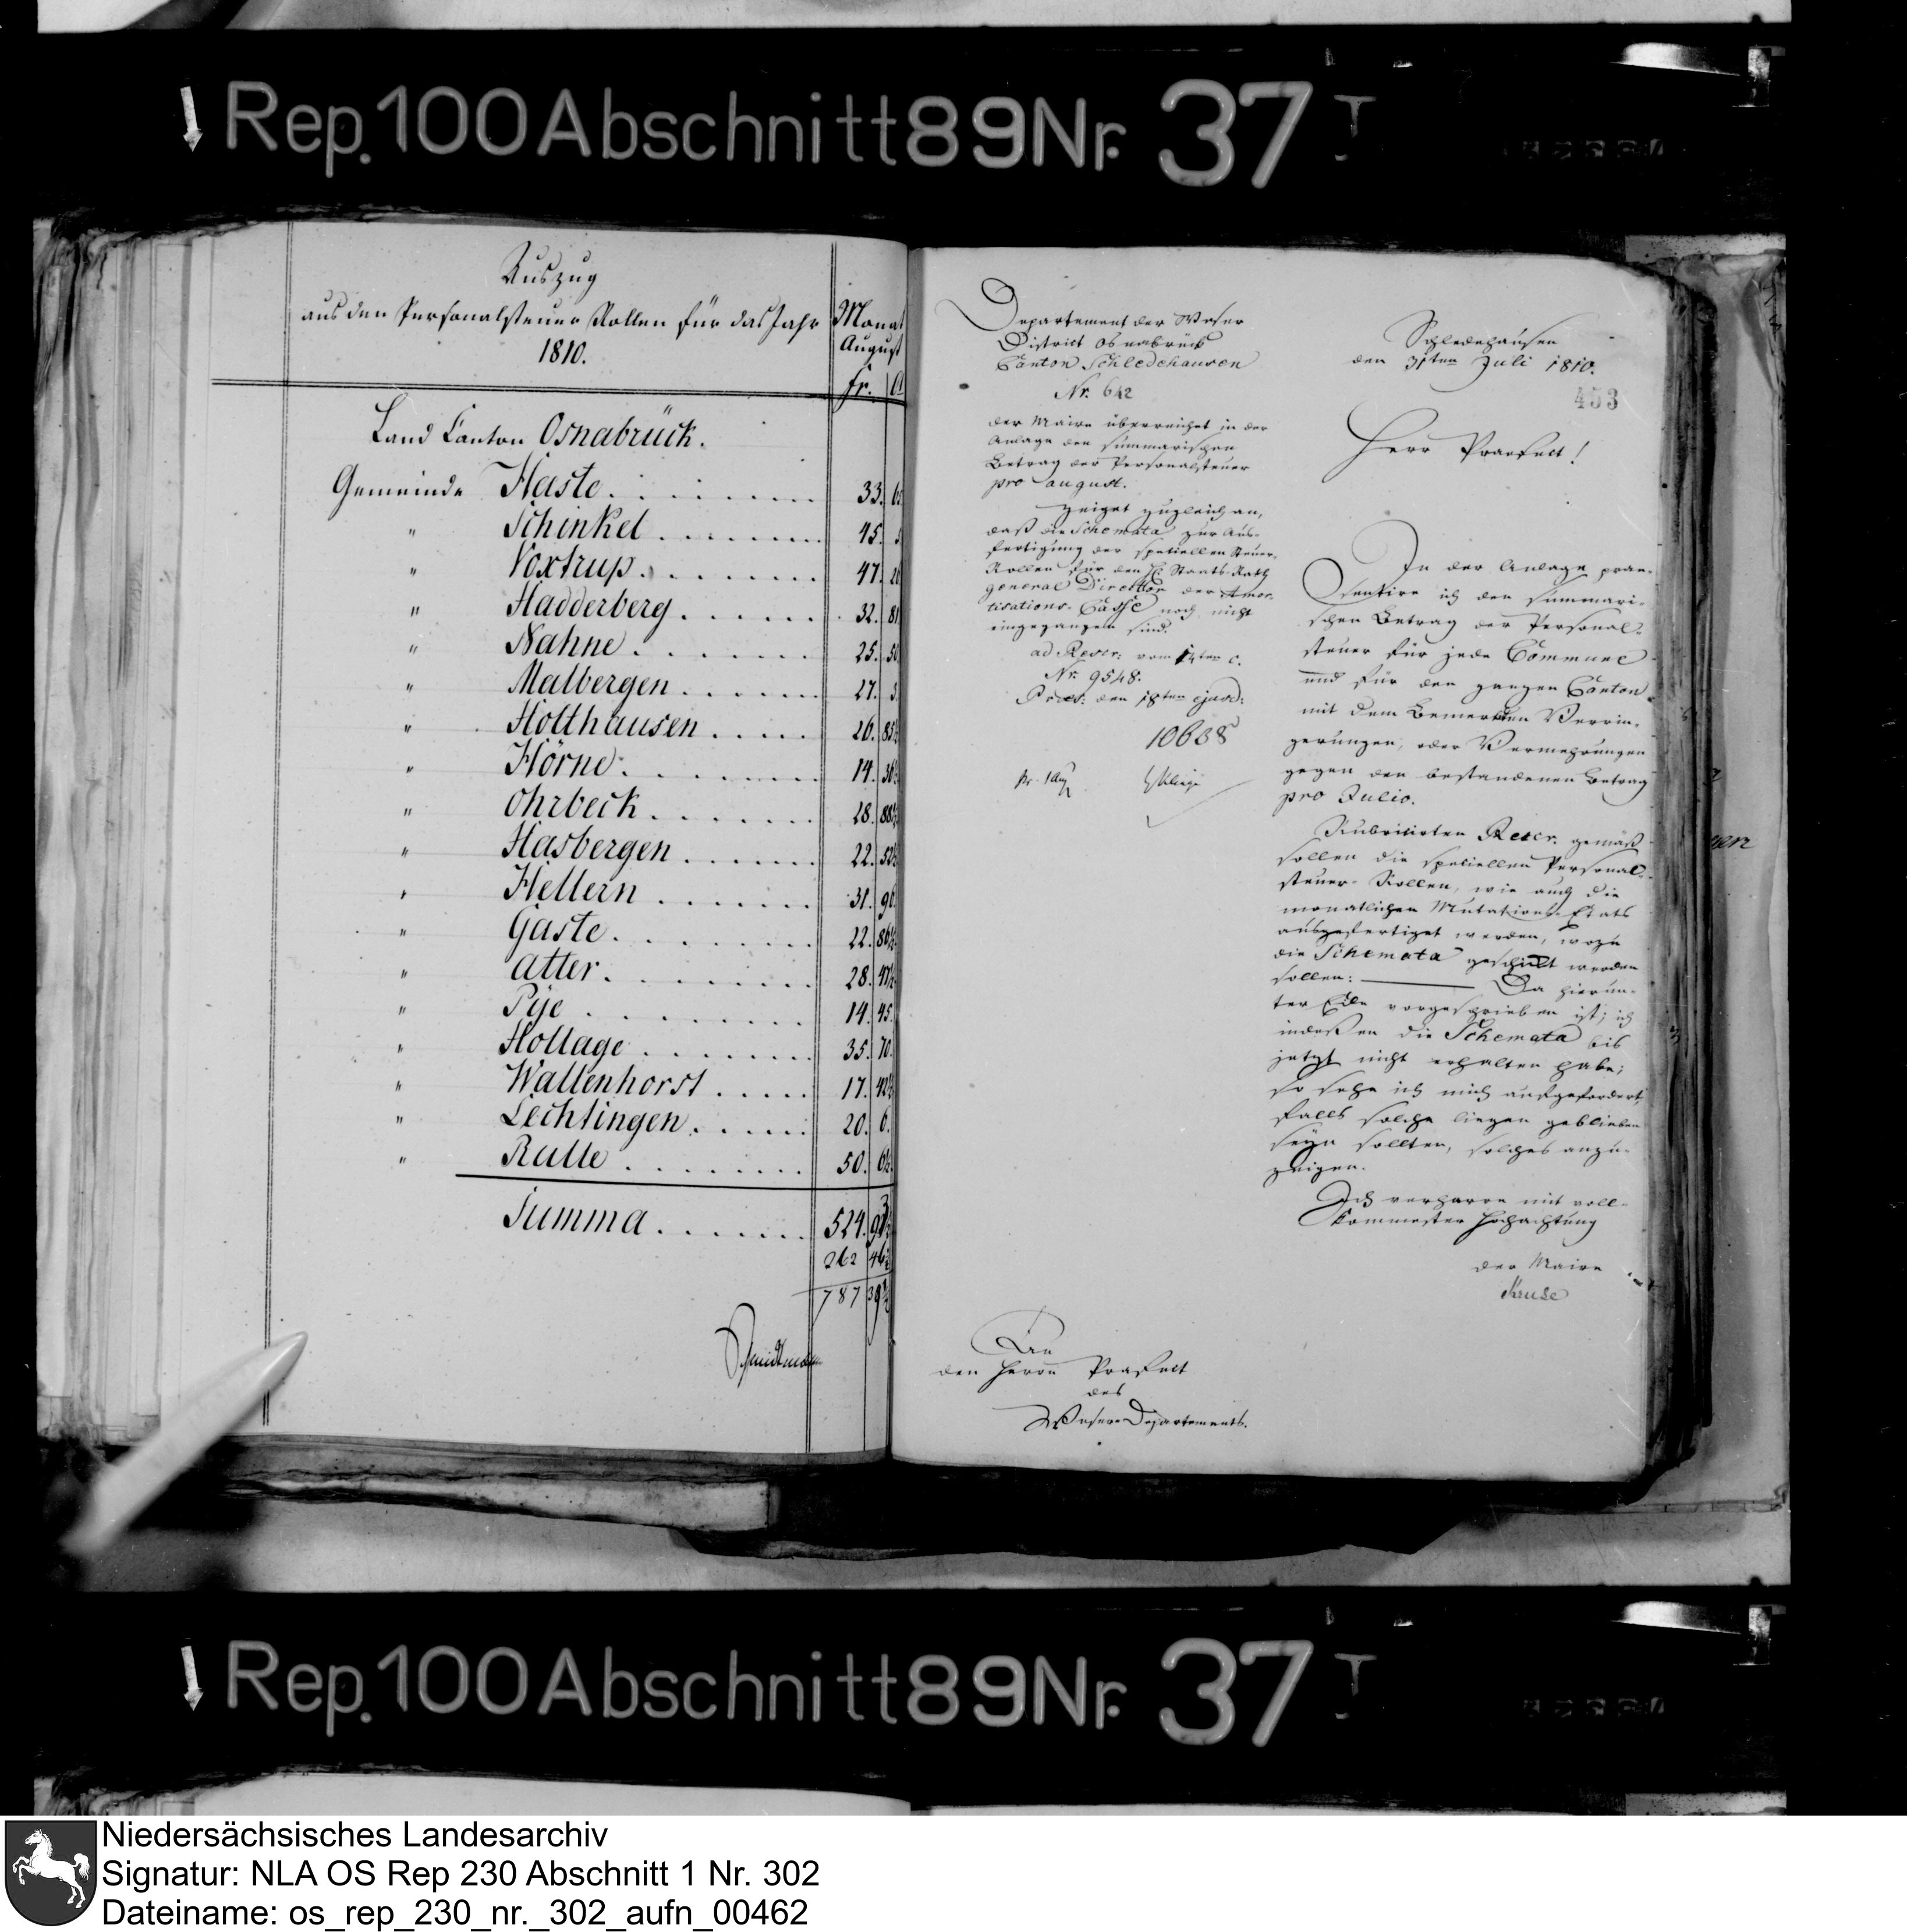 Rep. 100 Abschnitt 89 Nr. 37 I
Auszug
aus den Personalsteuer Rollen für das Jahr
1810.
Monat
August
fr.
Land Canton Osnabrück.
Gemeinde Haste . . . . . . 33.
" Schinkel . . . . . . . 45.
" Voxtrup . . . . . . . 47.
" Hadderberg . . . . . . 32. 81
" Nahne . . . . . . . 25. 50
" Malbergen . . . . . . 27. 3
" Holthausen . . . . . 20. 85½
" Hörne . . . . . . . 14. 36½
" Ohrbeck . . . . . . . 28. 88½
" Hasbergen . . . . . . 22. 52½
" Hellern . . . . . . . 31. 90
" Gaste . . . . . . . . 22. 86½
" Atter . . . . . . . . 28. 47½
" Pÿe . . . . . . . . 14. 45.
" Hollage . . . . . . . 35. 70.
" Wallenhorst . . . . . 17. 42½
" Lechtingen . . . . . 20. 6.
" Rulle . . . . . . . . 50. 6½
Summa . . . . . . . 524.
262 46½
787 39½
Departement der Weser
District Osnabrück
Canton Schledehausen
Nr. 642
der Maire überreichet in der
Anlage den summarischen
Betrag der Personalsteuer
pro august.
zeiget zugleich an,
daß die Schemata zur Aus-
fertigung der speciellen Steuer-
Rollen für den H. Staats-Rath
general Direktor der Amor-
tisations-Casse noch nicht
eingegangen sind.
ad Rescr: vom 14ten c.
Nr. 9548.
Praes: den 18ten ejusd:
10638
pr. 1 Aug
Schledehausen
den 31ten Juli 1810.
453
Herr Praefect!
In der Anlage prae-
sentire ich den summari-
schen Betrag der Personal-
steuer für jede Commune
und für den ganzen Canton
mit dem Bemerkten Verrin-
gerungen, oder Vermehrungen
gegen den bestandenen Betrag
pro Julio.
Rubricirten Rescr. gemäß
sollen die speciellen Personal-
steuer-Rollen, wie auch die
monatlichen Mutations-Etats
ausgefertiget werden, wozu
die Schemata geschickt werden
sollen: — Da hierun-
ter Eile vorgeschrieben ist; ich
indeßen die Schemata bis
jetzt nicht erhalten habe;
so sehe ich mich aufgefordert,
falls solche liegen geblieben
seyn sollten, solches anzu-
zeigen.
Ich verharre mit voll-
kommenster Hochachtung
der Maire
Kruse
An
den Herrn Präfect
des
Weser-Departements.
Rep. 100 Abschnitt 89 Nr. 37 I
Niedersächsisches Landesarchiv
Signatur: NLA OS Rep 230 Abschnitt 1 Nr. 302
Dateiname: os_rep_230_nr._302_aufn_00462